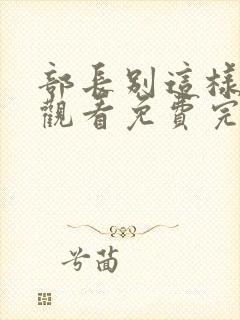 部長別這樣
觀看免費完
兮茵